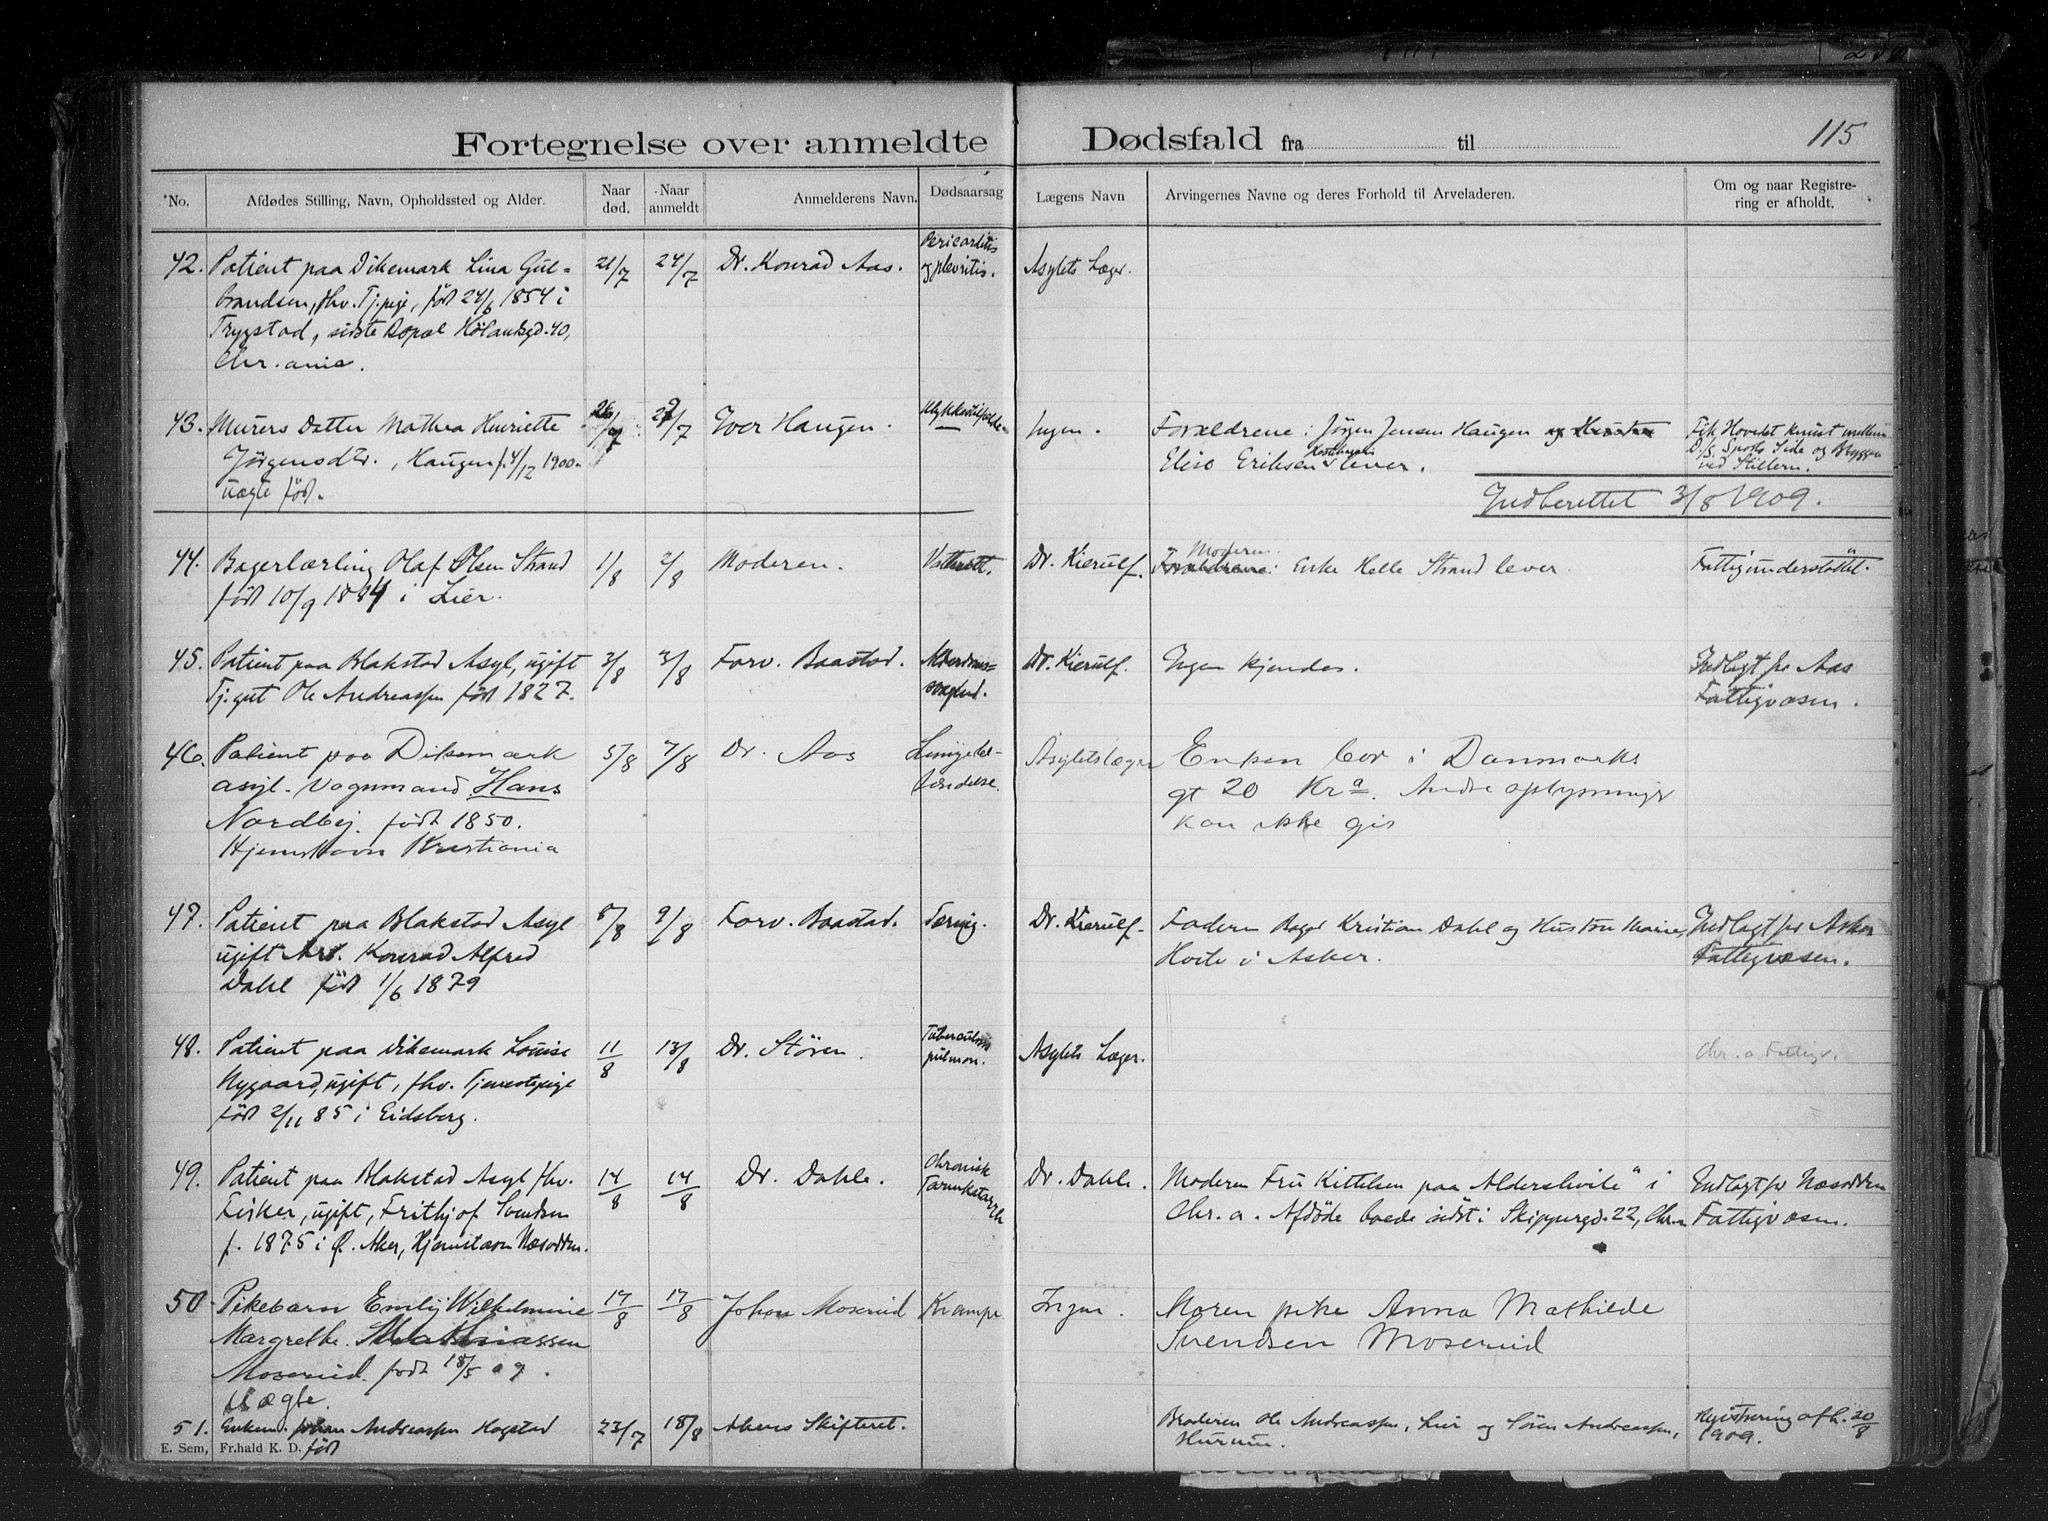 115
Fortegnelse over anmeldte Dødsfald fra til
No. Afdødes Stilling, Navn, Opholdssted og Alder. Naar død. Naar anmeldt Anmelderens Navn. Dødsaarsag Lægens Navn Arvingernes Navne og deres Forhold til Arveladeren. Om og naar Registrering er afholdt.
42. Patient paa Dikemark Lina Gul= 21/7 24/7 Dr. Konrad Aas. Pericarditis og plevritis. Asylets Læger.
brandsen, fhv. Tj.pige, født 24/6 1854 i
Trygstad, sidste Bopæl Hølandsgd. 40,
Chr.ania.
43. Murers Datter Mathea Henriette 26/7 27/7 Iver Haugen. Ulykkestilfælde. Ingen. Forældrene: Jørgen Jensen Haugen og Hustru Fik Hovedet knust mellem
Jørgensdtr., Haugen f. 4/12 1900. Elise Eriksen lever. D/S. Spots Side og Bryggen
uægte født. ved Stillern.
Indberettet 3/8 1909.
44. Bagerlærling Olaf Olsen Strand 1/8 2/8 Moderen. Vattersott. Dr. Kierulf. Forældrene: Moderen: Enke Helle Strand lever. Fattigunderstøttet.
født 10/9 1884 i Lier.
45. Patient paa Blakstad Asyl, ugift 3/8 3/8 Forv. Baastad. Alderdoms- Dr. Kierulf. Ingen kjendes. Indlagt pr Aas
Tj.gut Ole Andreassen født 1827. svaghed. Fattigvæsen.
46. Patient paa Dikemark 5/8 7/8 Dr. Aas Asylets læger Enken bor i Danmarks
asyl. Vognmand Hans gt 20 Kra. Andre oplysninger
Nordbej. født 1850. kan ikke gis
Hjemstavn Kristiania
47. Patient paa Blakstad Asyl 8/8 9/8 Forv. Baastad. Tæring. Dr. Kierulf. Faderen Bager Kristian Dahl og Hustru Marie, Indlagt pr Asker
ugift Arb. Konrad Alfred Hvite i Asker. Fattigvæsen.
Dahl født 1/6 1879
48. Patient paa Dikemark Louise 11/8 13/8 Dr. Støren. Tuberculosis pulmon. Asylets Læger. Chr. a Fattigv.
Nygaard, ugift, fhv. Tjenestepige
født 2/11 85 i Eidsberg.
49. Patient paa Blakstad Asyl fhv. 14/8 14/8 Dr. Dahle. Chronisk Tarmkatarrh Dr. Dahle. Moderen Fru Kittelsen paa "Aldershvile" i Indlagt pr Næsodden
Fisker, ugift, Frithjof Svendsen Chr. a. Afdøde boede sidst i Skippergd. 22, Chr.a Fattigvæsen.
f. 1875 i Ø. Aker, Hjemstavn Næsodden.
50 Pikebarn Emly Wilhelmine 17/8 17/8 Johan Moserud Krampe Ingen. Moren pike Anna Mathilde
Margrethe Mathiassen Svendsen Moserud
Moserud. født 18/5 09.
Uægte.
51. Enkem. Johan Andreassen Hogstad 23/7 18/8 Akers Skifteret. Broderen Ole Andreassen, Lier og Søren Andreassen, Registrering afh. 20/8
født Hurum. 1909.
E. Sem, Fr.hald K. D.